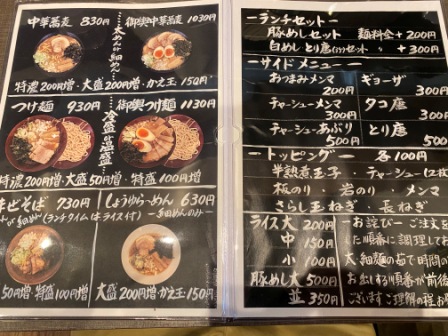 中華そば 830円
御製中華そば 1030円
太めんor細めん
特濃200円増・大盛200円増・かえ玉150円
つけ麺 930円
御製つけ麺 1130円
冷盛or温盛
特濃200円増・大盛50円増・特盛100円増
まぜそば 730円
(ランチタイムはライス付)
しょうゆらーめん 630円
ー細めんのみー
50円増 特盛100円増
大盛200円増・かえ玉150円
ーランチセットー
豚めしセット 麺料金+200円
白めしとり唐セット 〃 +300円
ーサイドメニューー
おつまみメンマ 200円
ギョーザ 300円
チャーシューメンマ 300円
タコ唐 300円
チャーシューあぶり 500円
とり唐 500円
ートッピングー 各100円
半熟煮玉子・チャーシュー(2枚
板のり・岩のり・メンマ
さらし玉ねぎ・長ねぎ
ライス 大 200円
中 150円
小 100円
豚めし大 500円
並 350円
ーお詫びー ご注文を
た順番に調理してお
太・細麺の茹で時間の
お出しする順番が前後
ございます ご理解の程お